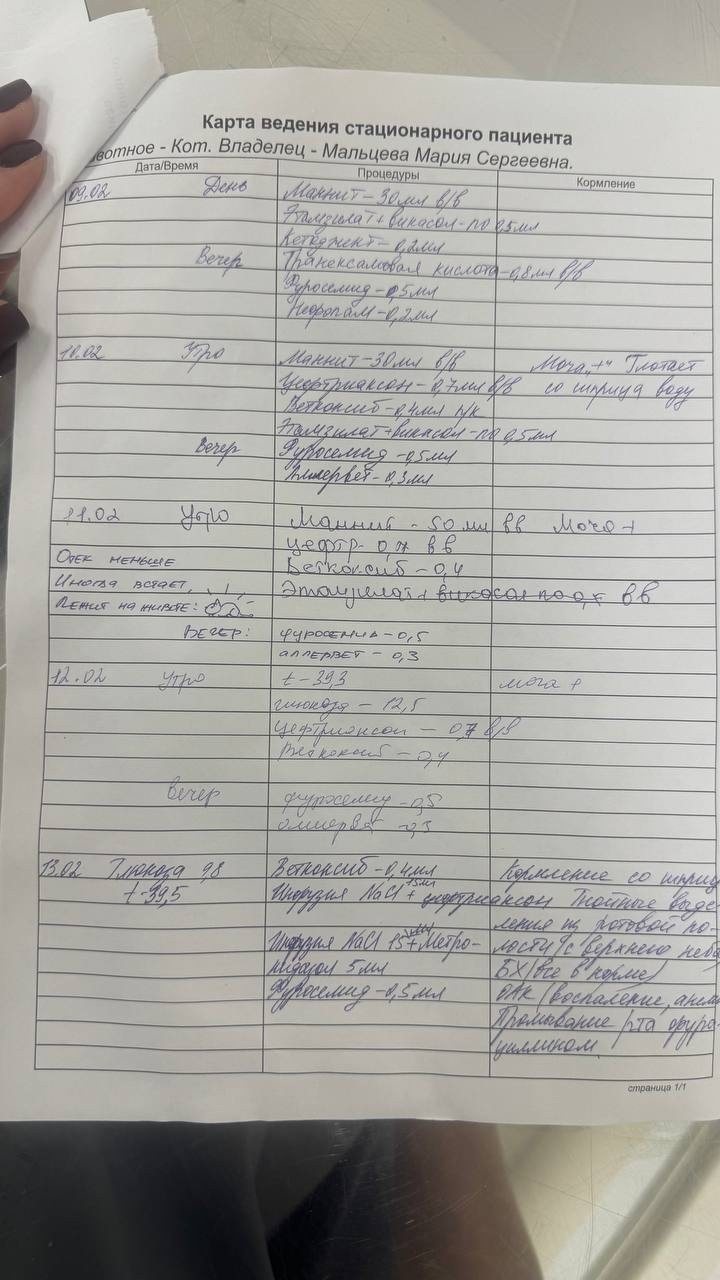 Карта ведения стационарного пациента
вотное - Кот. Владелец - Мальцева Мария Сергеевна.
Дата/Время Процедуры Кормление
09.02 День Маннит - 30 мл в/в
Этамзилат + викасол - по 0,5 мл
Кетоджект - 0,2 мл
Вечер Транексамовая кислота - 0,8 мл в/в
Фуросемид - 0,5 мл
Нефопам - 0,2 мл
10.02 Утро Маннит - 30 мл в/в Моча "+" Глотает
Цефтриаксон - 0,7 мл в/в со шприца воду
Веткоксиб - 0,4 мл п/к
Этамзилат + викасол - по 0,5 мл
Вечер Фуросемид - 0,5 мл
Аллервет - 0,3 мл
11.02 Утро Маннит - 50 мл вв Моча +
цефтр - 0,7 вв
Отек меньше Веткоксиб - 0,4
Иногда встает, Этамзилат + викасол по 0,5 вв
Лежит на животе:
Вечер: фуросемид - 0,5
аллервет - 0,3
12.02 Утро t - 39,3 моча +
глюкоза - 12,5
цефтриаксон - 0,7 в/в
Веткоксиб - 0,4
Вечер фуросемид - 0,5
аллервет - 0,3
13.02 Глюкоза 9,8 Веткоксиб - 0,4 мл Кормление со шприц
t - 39,5 Инфузия NaCl 15мл + цефтриаксон Гнойные выде-
ления из ротовой по-
Инфузия NaCl 15 мл + Метро- лости (с верхнего неба
нидазол 5 мл БХ (все в норме)
Фуросемид - 0,5 мл ОАК (воспаление, анем
Промывание рта фура-
циллином.
страница 1/1